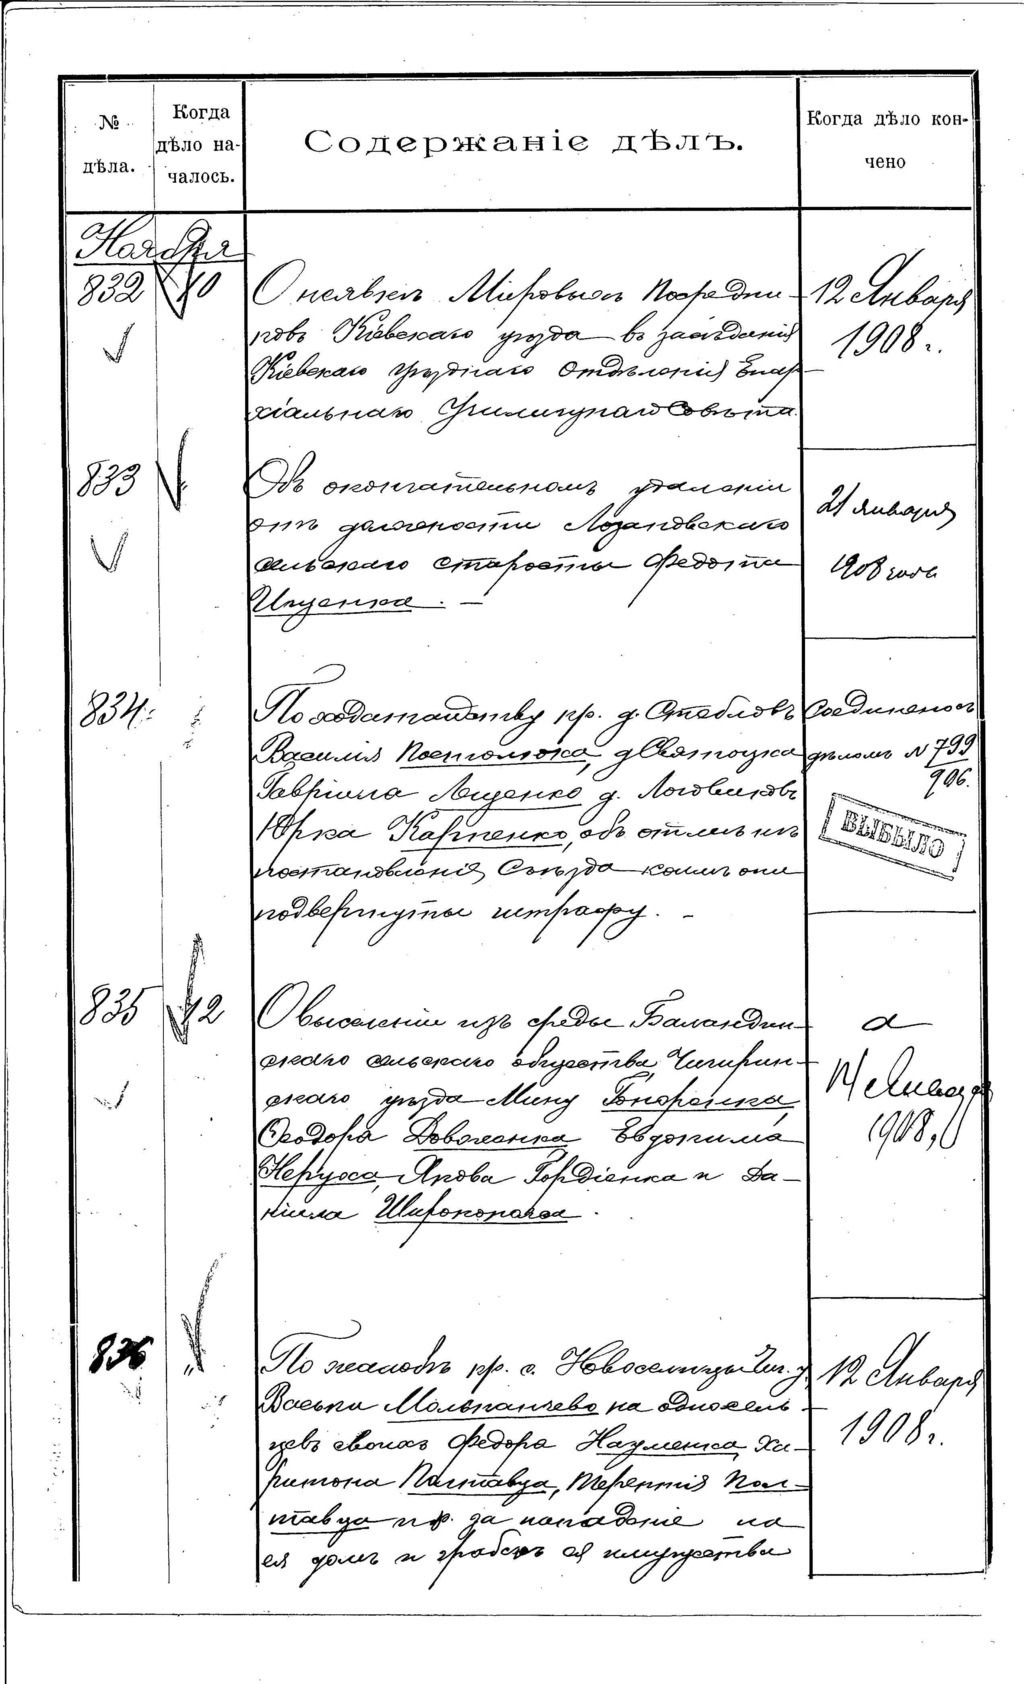 № дѣла.
Когда дѣло на-
чалось.
Содержаніе дѣлъ.
Когда дѣло кон-
чено
Ноября
832 10
О неявкѣ Мировыхъ Посредни-
ковъ Кіевскаго уѣзда въ засѣданія
Кіевскаго уѣзднаго Отдѣленія Епар-
хіальнаго Училищнаго Совѣта
12 Января
1908 г.
833
Объ окончательномъ удаленіи
отъ должности Лозановскаго
сельскаго старосты Федота
Ищенка. —
21 января
1908 года
834
По ходатайству кр. д. Стеблевъ
Василія, д.
Гавріила Лещенко д.
Юрка Карпенко, объ отмѣнѣ
постановленія Съѣзда коимъ они
подвергнуты штрафу. –
Соединено съ
дѣломъ N 799
906.
ВЫБЫЛО
835 12
О выселеніи изъ среды Баландин-
скаго сельскаго общества, Чигирин-
скаго уѣзда Мину
Ѳеодора Довженка Евдокима
Неруха, Якова Гордіенка и Да-
ніила
14 Января
1908 г.
836 "
По жалобѣ кр. с. Новоселицы Чиг. у.
Васьки на односель-
цевъ своихъ Федора Науменка, Ха-
ритона Полтавца, Терентія Пол-
тавца и др. за нападеніе на
ея домъ и грабежъ ея имущества
12 Января
1908 г.